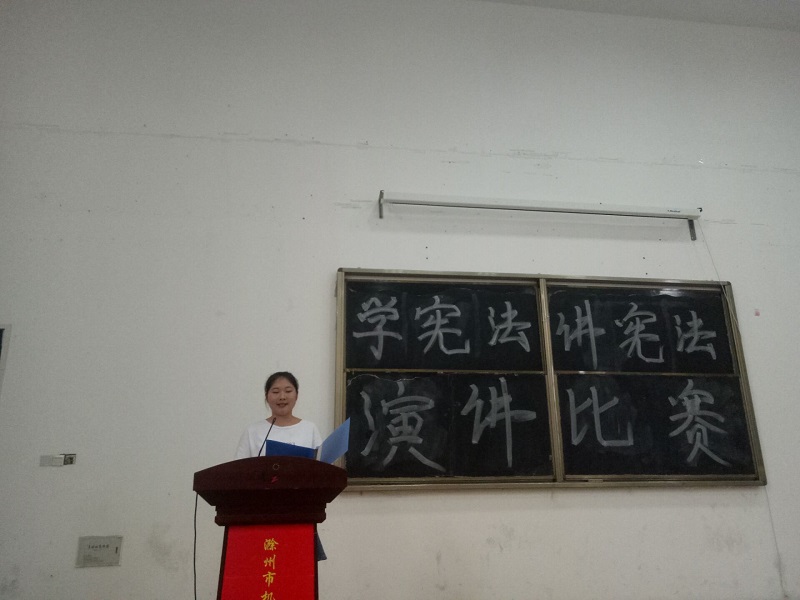 学宪法 讲宪法
演讲比赛
滁
州
市
机